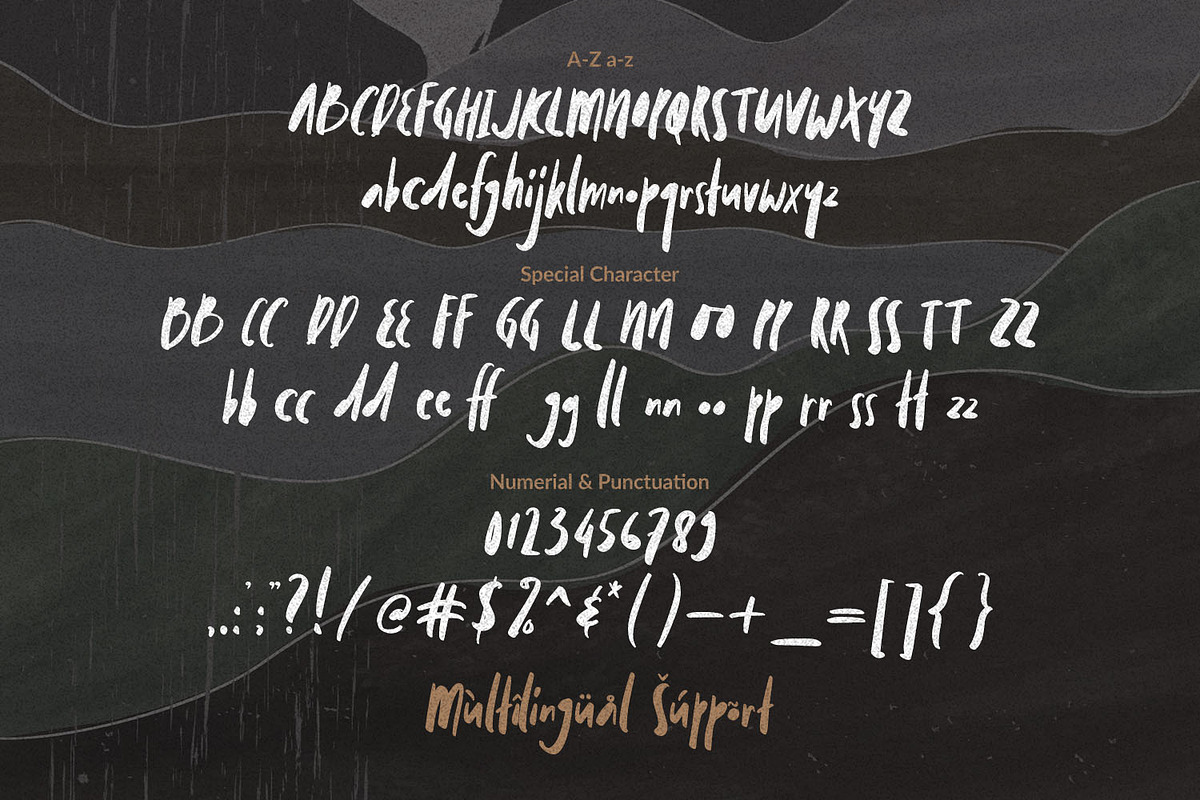 A-Z a-z
ABCDEFGHIJKLMNOPQRSTUVWXYZ
abcdefghijklmnopqrstuvwxyz
Special Character
BB CC DD EE FF GG LL NN OO PP RR SS TT ZZ
bb cc dd ee ff gg ll nn oo pp rr ss tt zz
Numerial & Punctuation
0123456789
,..:;'"?!/@#$%^&*()-+_=[]{}
Mùltîlingüål Šúppõrt